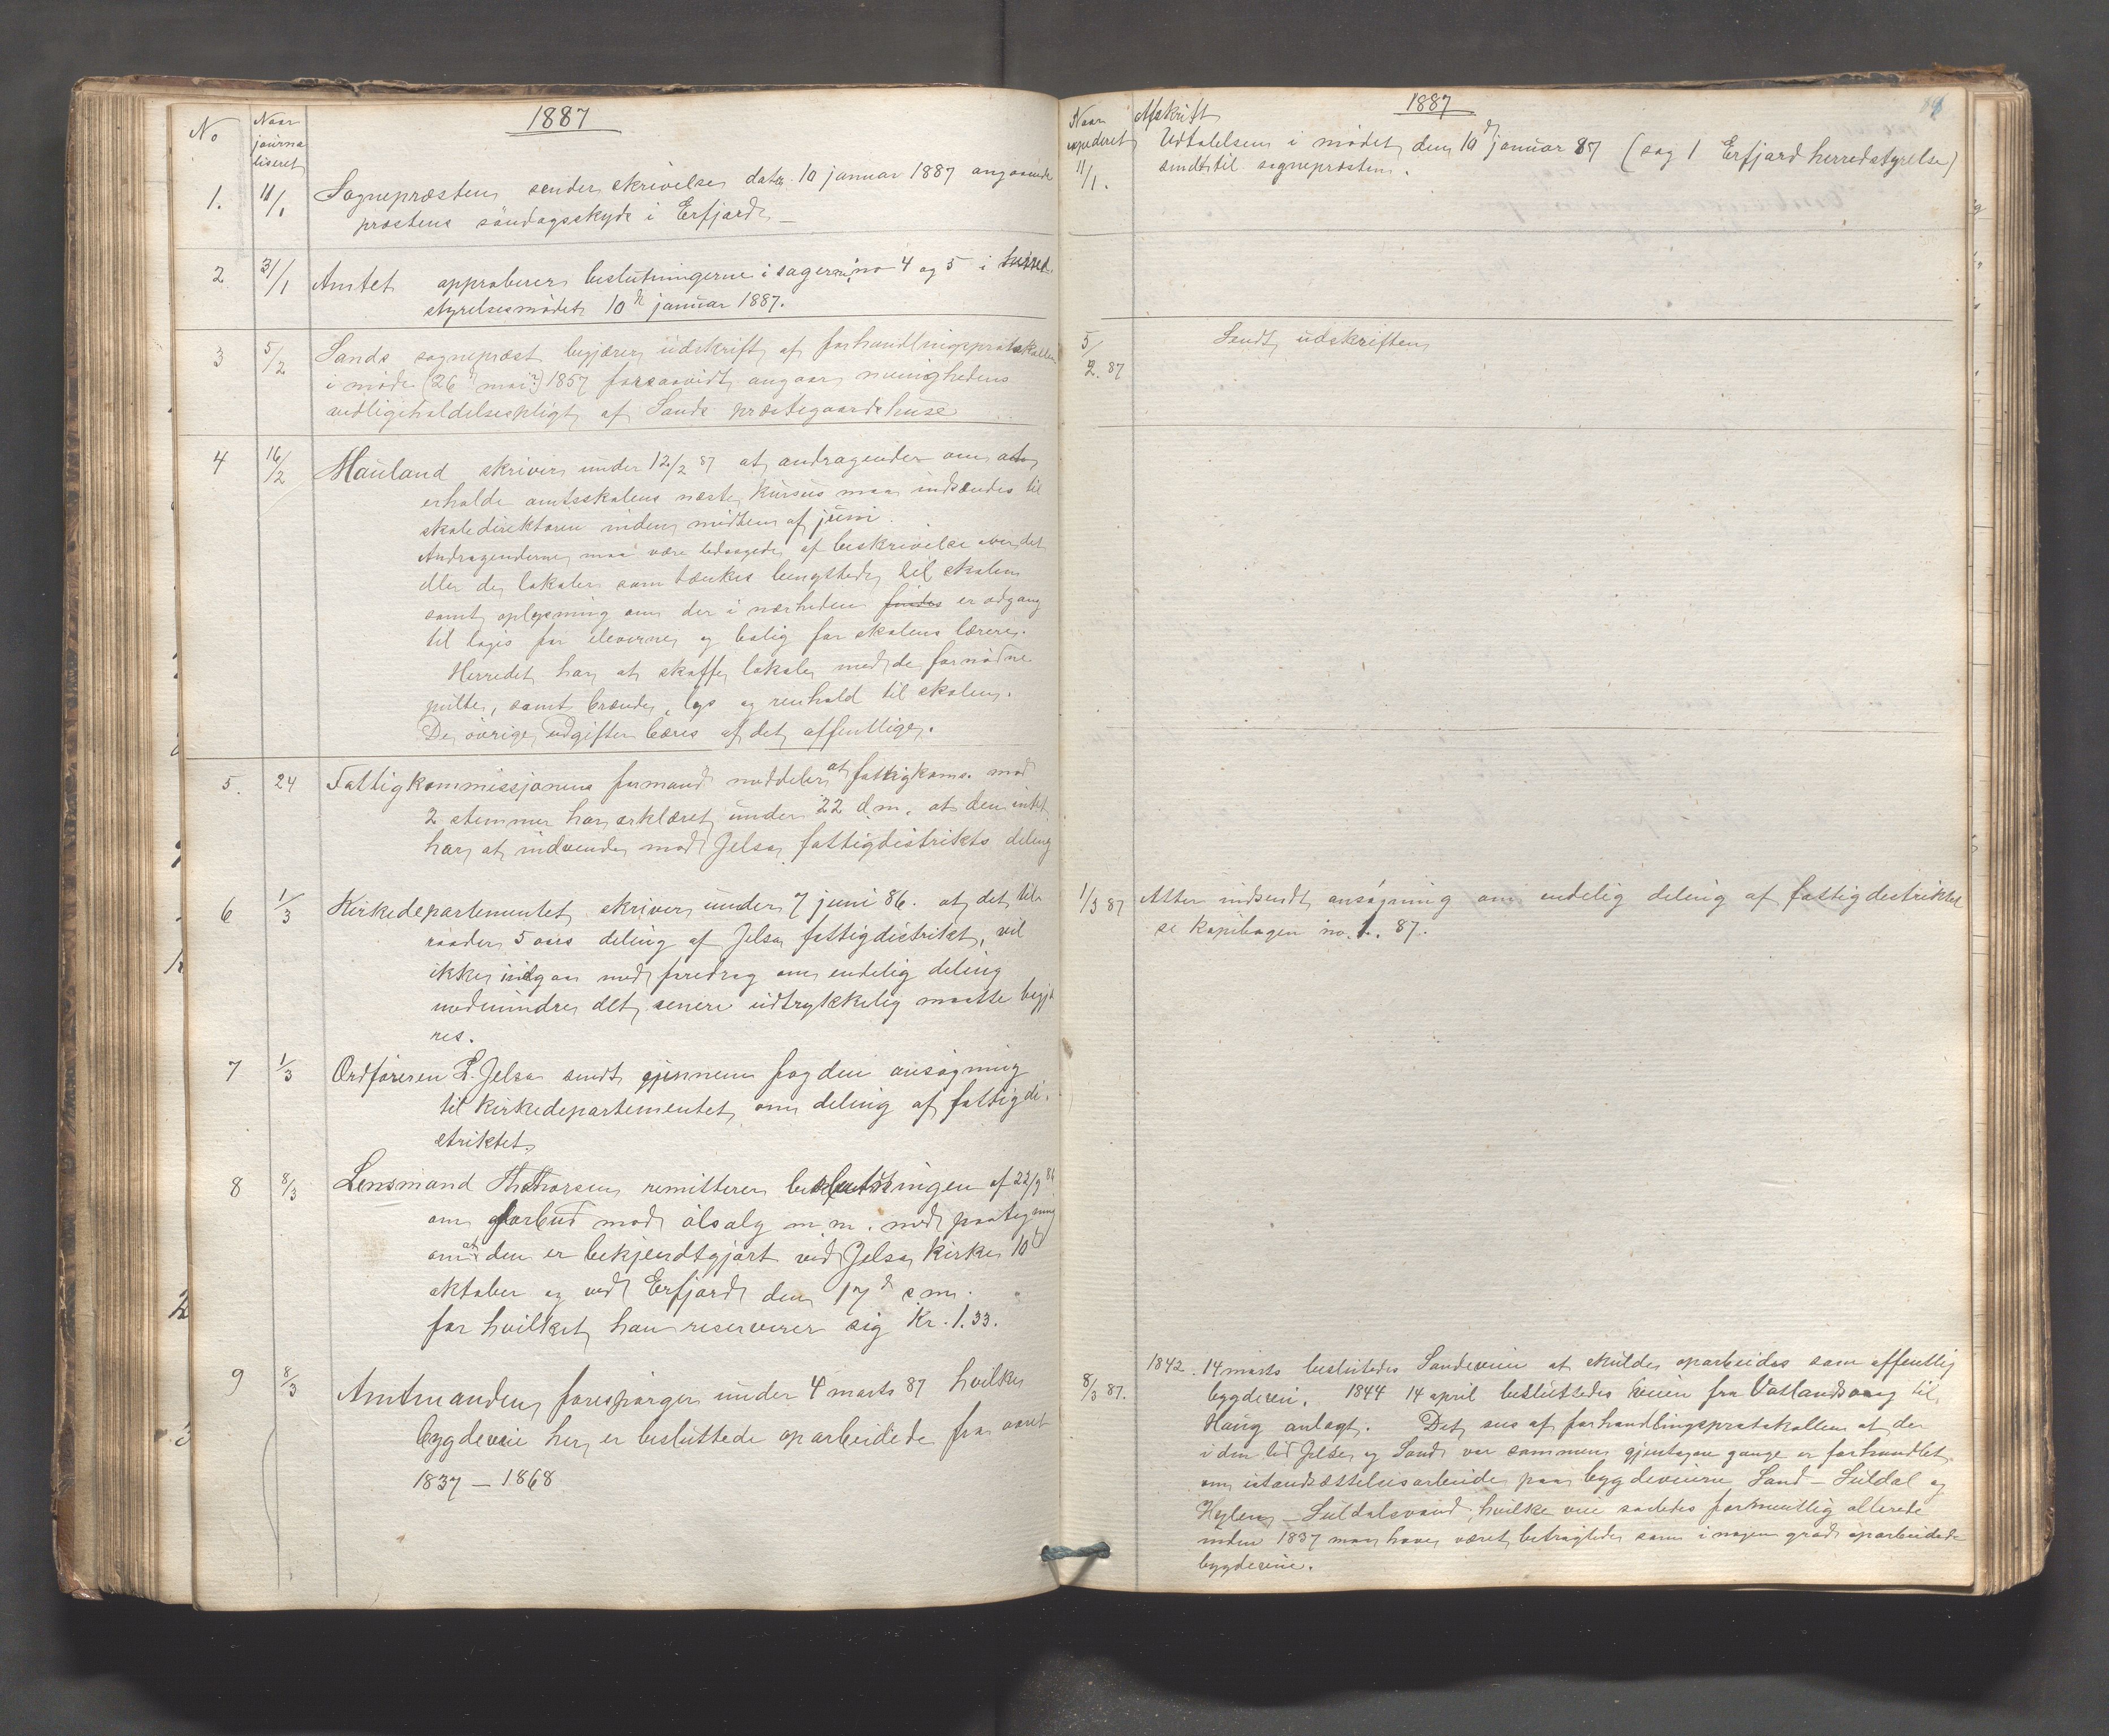 1887
No
Naar
journa
liseret
1. 11/1 Sognepræsten sender skrivelse dat. 10 januar 1887 angaaende
præstens söndagsskyds i Erfjord.
2 31/1 Amtet approberer beslutningerne i sagerne no 4 og 5 i herred
styrelsesmödet 10d januar 1887.
3 5/2 Sands sognepræst begjærer udskrift af forhandlingsprotokollen
i möde (26 mai?) 1857 forsaavidt angaar menighedens
vedligeholdelsespligt af Sands præstegaardshuse
4 16/2 Mauland skriver under 12/2 87 at andragender om at
erholde amtsskolens næste kursus maa indsendes til
skoledirektören inden midten af juni.
Andragenderne maa være ledsagede af beskrivelse over det
eller de lokaler som tænkes benyttede til skolen
samt oplysning om der i nærheden findes er adgang
til logis for eleverne og bolig for skolens lærere.
Herredet har at skaffe lokale med de fornödne
pulte, samt brænde, lys og renhold til skolen.
De övrige udgifter bæres af det offentlige.
5. 24 Fattigkommissjonens formand meddeler at fattigkoms. mod
2 stemmer har erklæret under 22 d.m. at den intet
har at indvende mod Jelsa fattigdistrikts deling
6 1/3 Kirkedepartementet skriver under 7 juni 86. at det til-
raader 5 aars deling af Jelsa fattigdistrikt, vil
ikke indgaa med foredrag om endelig deling
medmindre det senere udtrykkelig maatte begjæ
res.
7 1/3 Ordföreren L. Jelsa sendt gjennem fogden ansögning
til kirkedepartementet om deling af fattigdi-
striktet.
8 8/3 Lensmand Thorsen remitterer beslutningen af 22/9 86
om forbud mod ölsalg m.m. med paategning
om at den er bekjendtgjort ved Jelsa kirke 10d
oktober og ved Erfjord den 17d s.m.
for hvilket han reserverer sig Kr. 1.33.
9 8/3 Amtmanden forespörger under 4 marts 87 hvilke
bygdeveie her er besluttede oparbeidede fra aaret
1837 – 1868
1887
Naar
expederet
Afskrift
11/1. Udtalelsen i mödet den 10d januar 87 (sag 1 Erfjord herredstyrelse)
sendt til sognepræsten.
5/2. 87 Sendt udskriften
1/3 87 Atter indsendt ansögning om endelig deling af fattigdistriktet
se kopibogen no. 1. 87.
8/3 87. 1842. 14 marts besluttedes Sandeveien at skulde oparbeides som offentlig
bygdevei. 1844 14 april besluttedes veien fra Vatlandsvaag til
Haug anlagt. Det sees af forhandlingsprotokollen at der
i den tid Jelse og Sand var sammen gjentagne gange er forhandlet
om istandsættelsesarbeide paa bygdeveiene Sand – Suldal og
Hylen – Suldalsvand, hvilke veie saaledes formentlig allerede
inden 1837 maa have været betragtede som i nogen grad oparbeidede
bygdeveie.